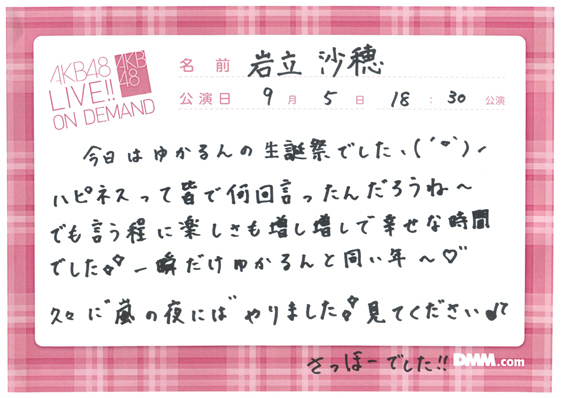 AKB48
LIVE!!
ON DEMAND
AKB
48
名前 岩立 沙穂
公演日 9月 5日 18:30公演
今日はゆかるんの生誕祭でした、(´ㅂ`)ノ
ハピネスって皆で何回言ったんだろうね〜
でも言う程に楽しさも増し増しで幸せな時間
でした 一瞬だけゆかるんと同い年〜♡
久々に"嵐の夜には"やりました 見てください♪て
さっほーでした!! DMM.com